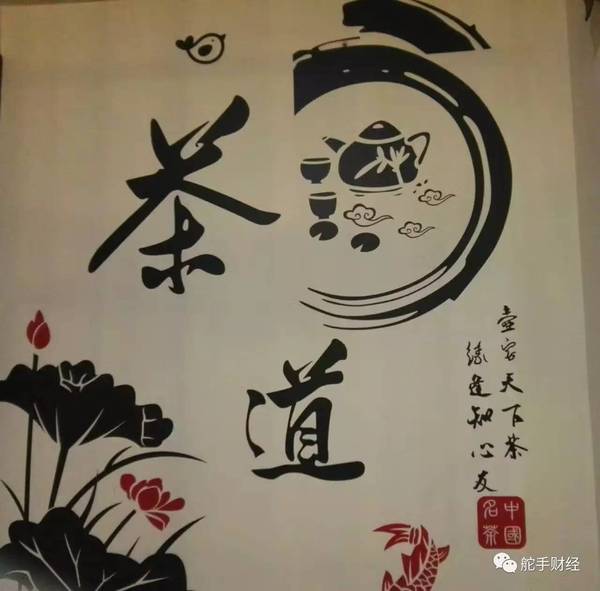 茶道
壶容天下茶
缘逢知心友
中國名茶
舵手财经